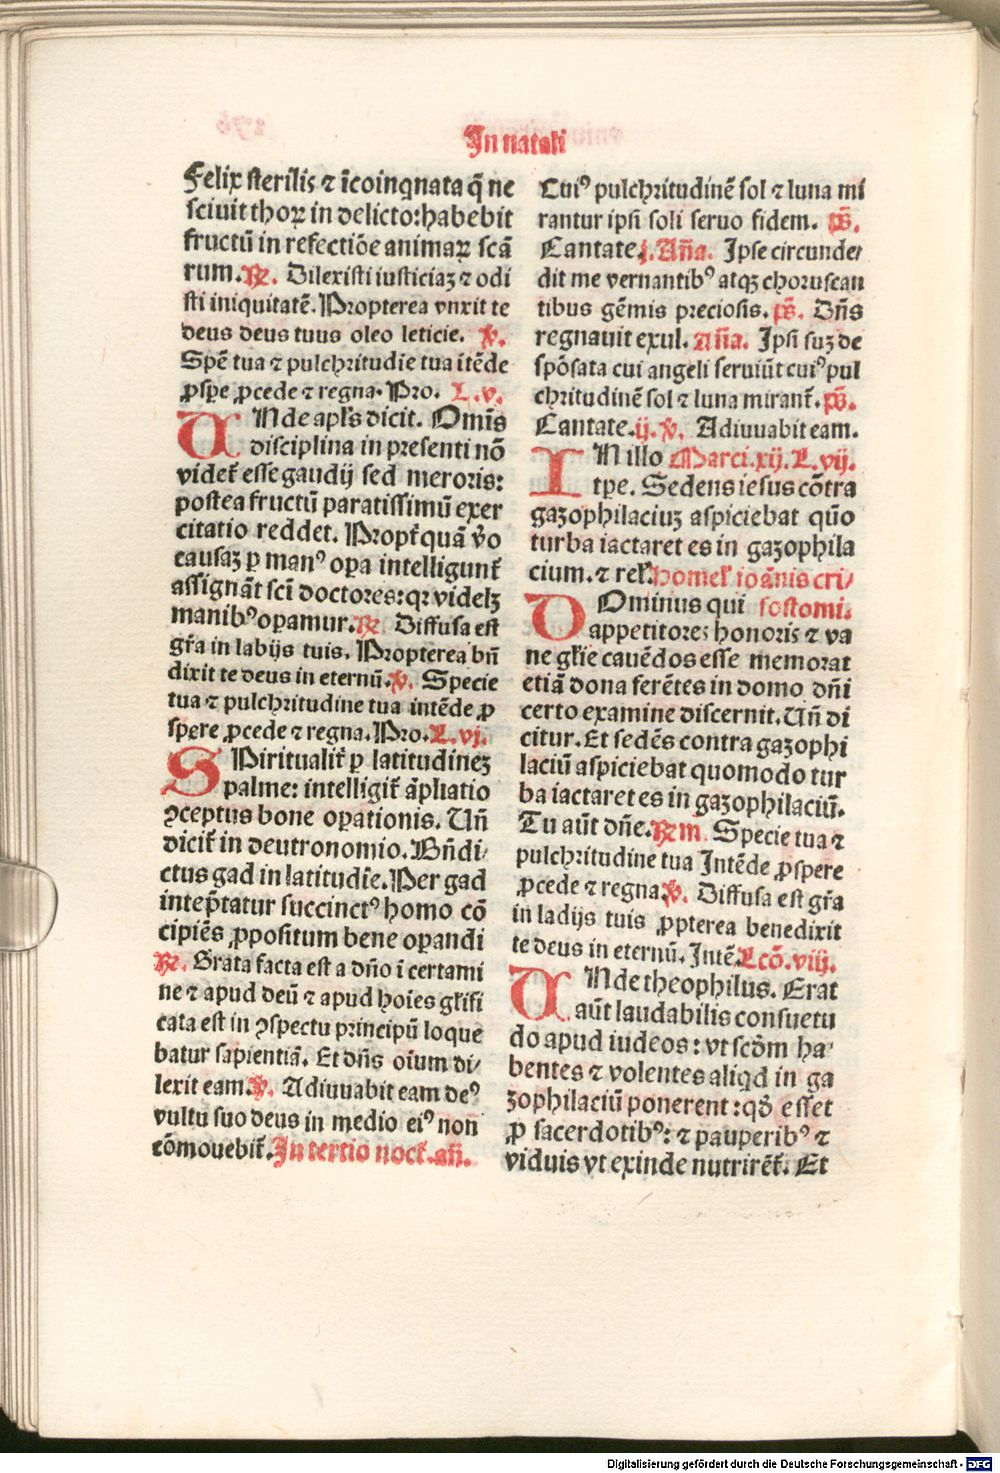 In natali
Felix sterilis ⁊ īcoinqnata q̄ ne
sciuit thoꝝ in delicto: habebit
fructū in refectiōe animaꝝ scā
rum. ℟. Dilexisti iusticiaȝ ⁊ odi
sti iniquitatē. Propterea vnxit te
deus deus tuus oleo leticie. ℣.
Spē tua ⁊ pulchritudīe tua ītēde
ꝓspe ꝓcede ⁊ regna. Pro. L. v.
UNde apl's dicit. Omīs
disciplina in presenti nō
videt' esse gaudij sed meroris:
postea fructū paratissimū exer
citatio reddet. Propt'quā v̄o
causaȝ ꝑ manꝰ oꝑa intelligunt'
assignāt scī doctores: qꝛ videlȝ
manibꝰ oꝑamur. ℟. Diffusa est
gr̄a in labijs tuis. Propterea bn̄
dixit te deus in eternū. ℣. Specie
tua ⁊ pulchritudine tua intēde ꝓ
spere ꝓcede ⁊ regna. Pro. L. vj.
SPiritualit' ꝑ latitudineȝ
palme: intelligit' āpliatio
ꝯceptus bone oꝑationis. Un̄
dicit' in deutronomio. Bn̄di
ctus gad in latitudīe. Per gad
inteꝑ̄tatur succinctꝰ homo cō
cipiēs ꝓpositum bene oꝑandi
℟. Grata facta est a dn̄o ī certami
ne ⁊ apud deū ⁊ apud hoīes gl'ifi
cata est in ꝯspectu principū loque
batur sapientiā. Et dn̄s oīum di
lexit eam. ℣. Adiuuabit eam deꝰ
vultu suo deus in medio eiꝰ non
cōmouebit'. In tertio noct'. an̄.
Cuiꝰ pulchritudinē sol ⁊ luna mi
rantur ipsi soli seruo fidem. ps̄.
Cantate. j. An̄a. Ipse circunde
dit me vernantibꝰ atqȝ choruscan
tibus gēmis preciosis. ps̄. Dn̄s
regnauit exul. An̄a. Ipsi suȝ de
spōsata cui angeli seruiūt cuiꝰ pul
chritudinē sol ⁊ luna mirant'. ps̄.
Cantate. ij. ℣. Adiuuabit eam.
IN illo Marci. xij. L. vij.
tꝑe. Sedens iesus cōtra
gazophilaciuȝ aspiciebat quō
turba iactaret es in gazophila
cium. ⁊ rel'. homel' ioānis cri
DOminus qui sostomi.
appetitores honoris ⁊ va
ne gl'ie cauēdos esse memorat
etiā dona ferētes in domo dn̄i
certo examine discernit. Un̄ di
citur. Et sedēs contra gazophi
laciū aspiciebat quomodo tur
ba iactaret es in gazophilaciū.
Tu aūt dn̄e. ℟m. Specie tua ⁊
pulchritudine tua Intēde ꝓspere
ꝓcede ⁊ regna. ℣. Diffusa est gr̄a
in ladijs tuis ꝓpterea benedixit
te deus in eternū. Intē. Lcō. viij.
UNde theophilus. Erat
aūt laudabilis consuetu
do apud iudeos: vt scd̄m ha
bentes ⁊ volentes aliqd in ga
zophilaciū ponerent: qd̄ esset
ꝓ sacerdotibꝰ: ⁊ pauperibꝰ ⁊
viduis vt exinde nutrirēt'. Et
Digitalisierung gefördert durch die Deutsche Forschungsgemeinschaft - DFG